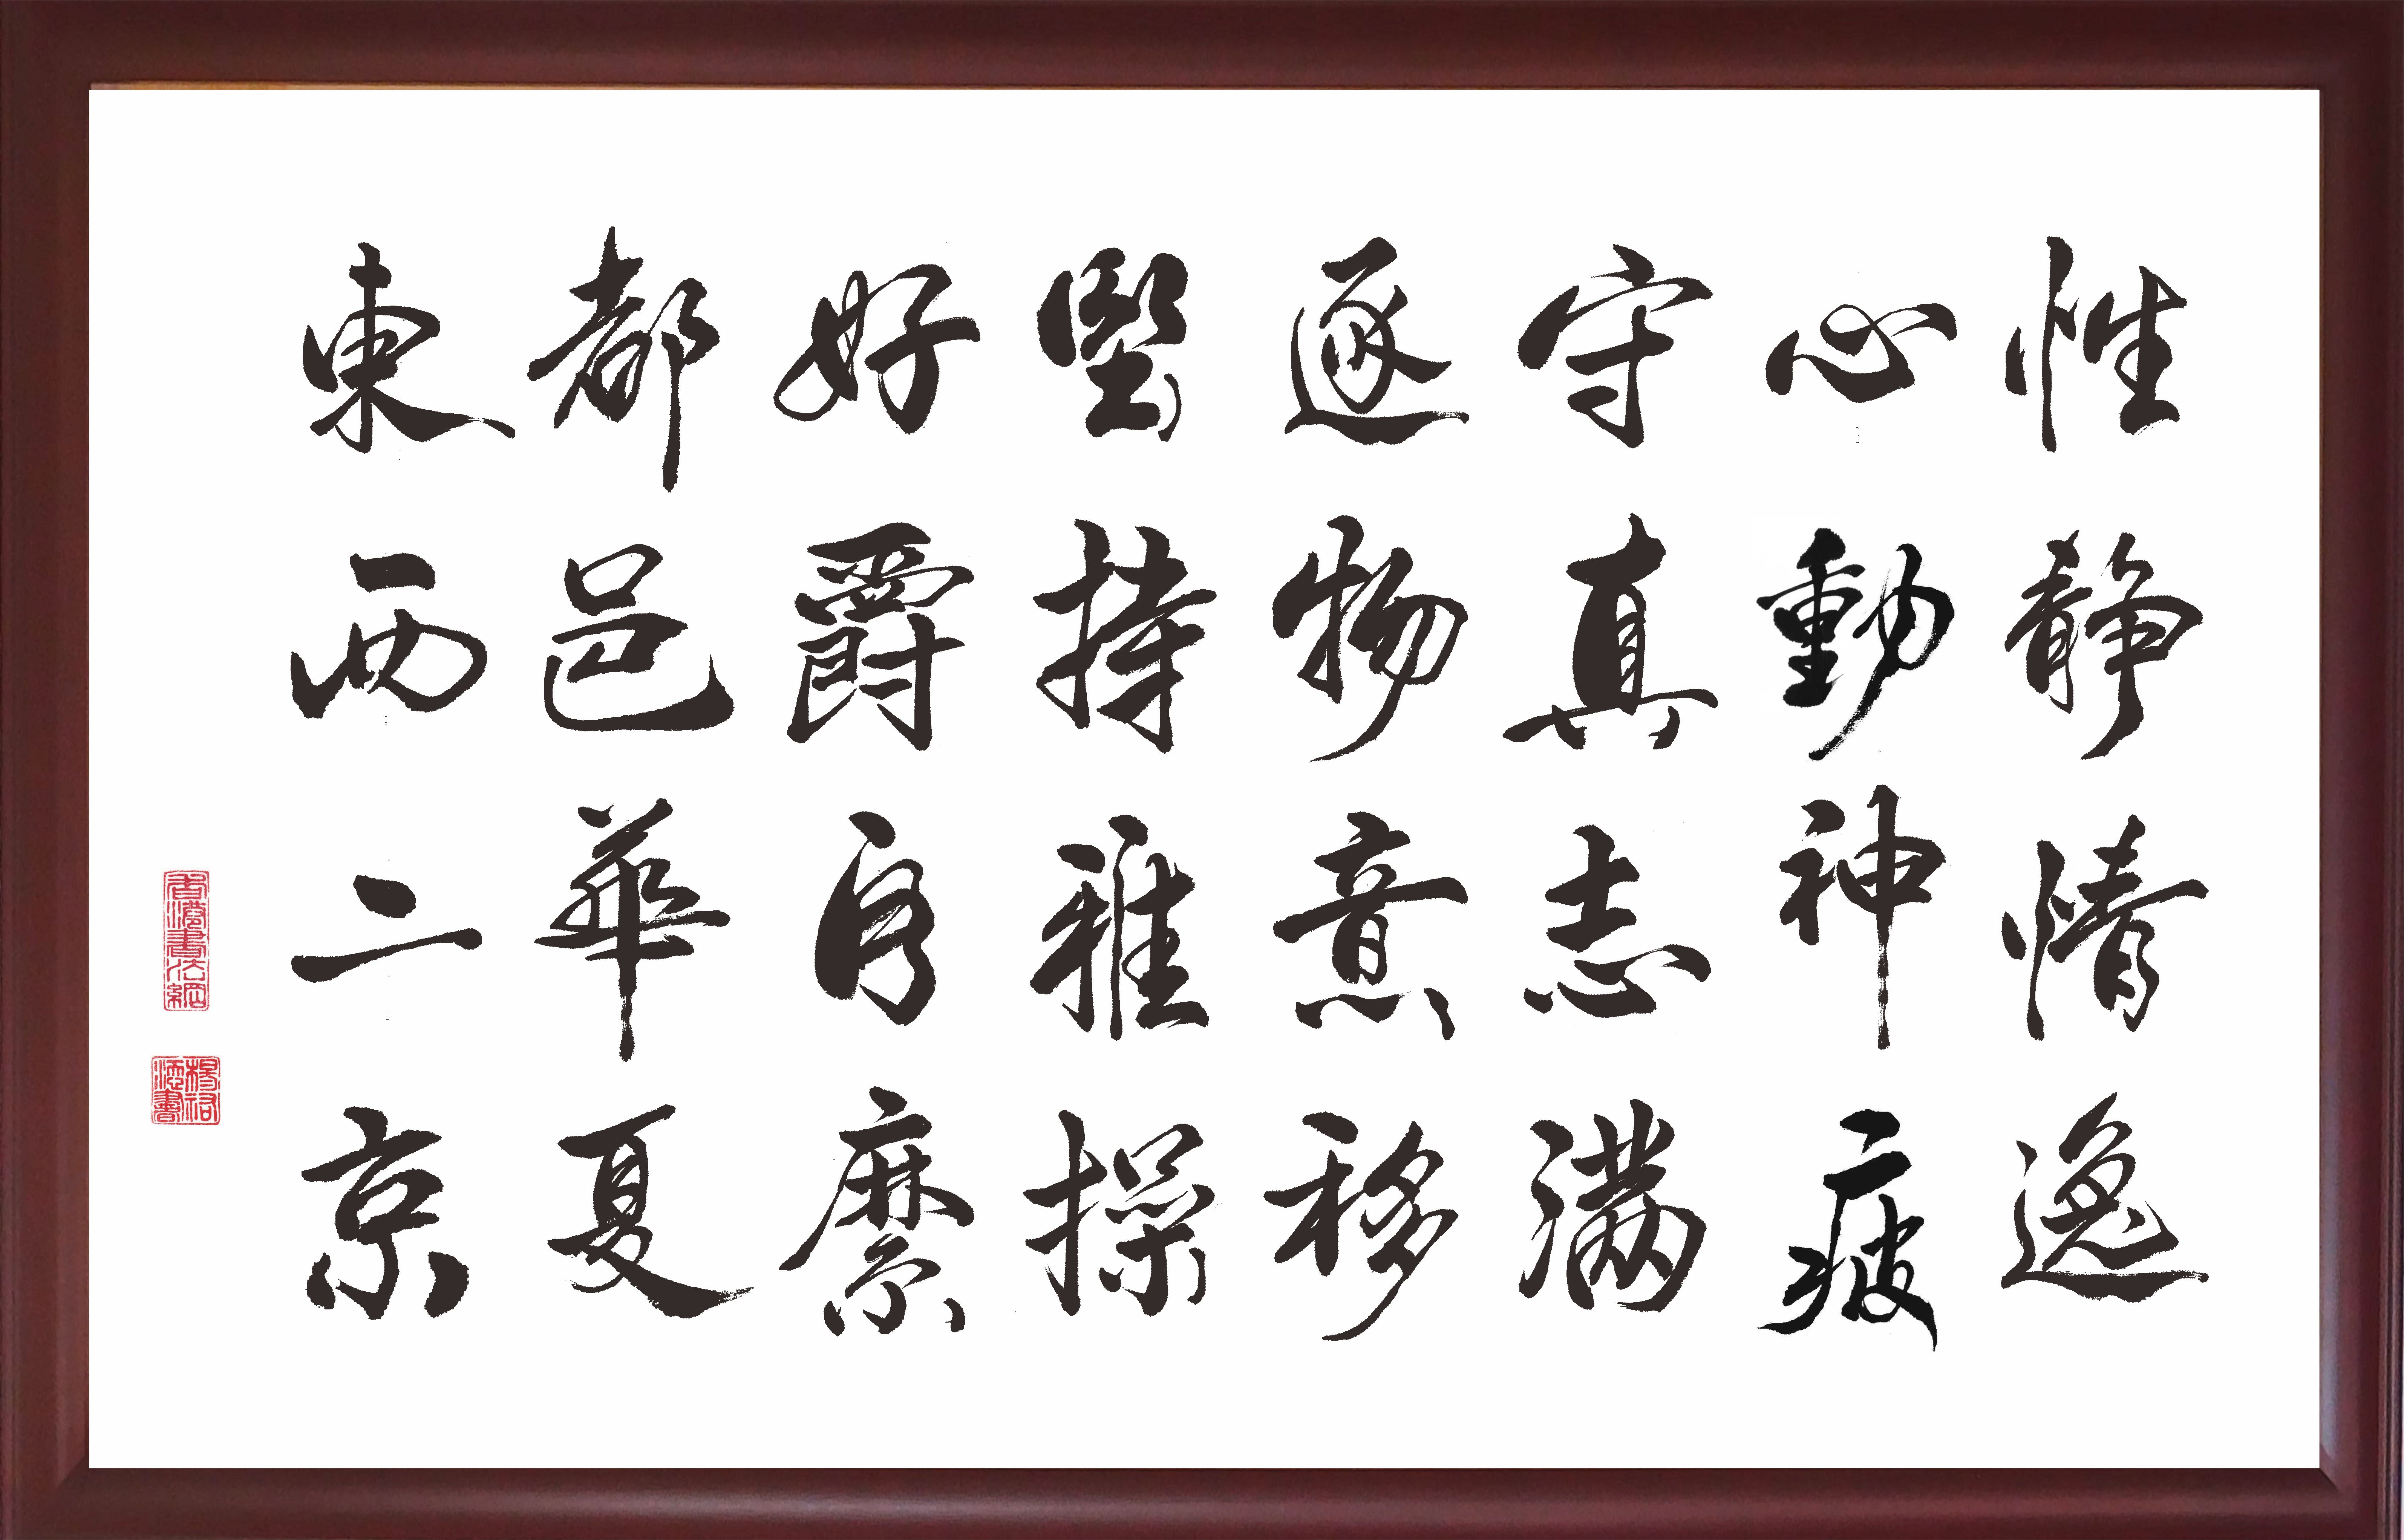 性静情逸
心動神疲
守真志滿
逐物意移
堅持雅操
好爵自縻
都邑華夏
東西二京